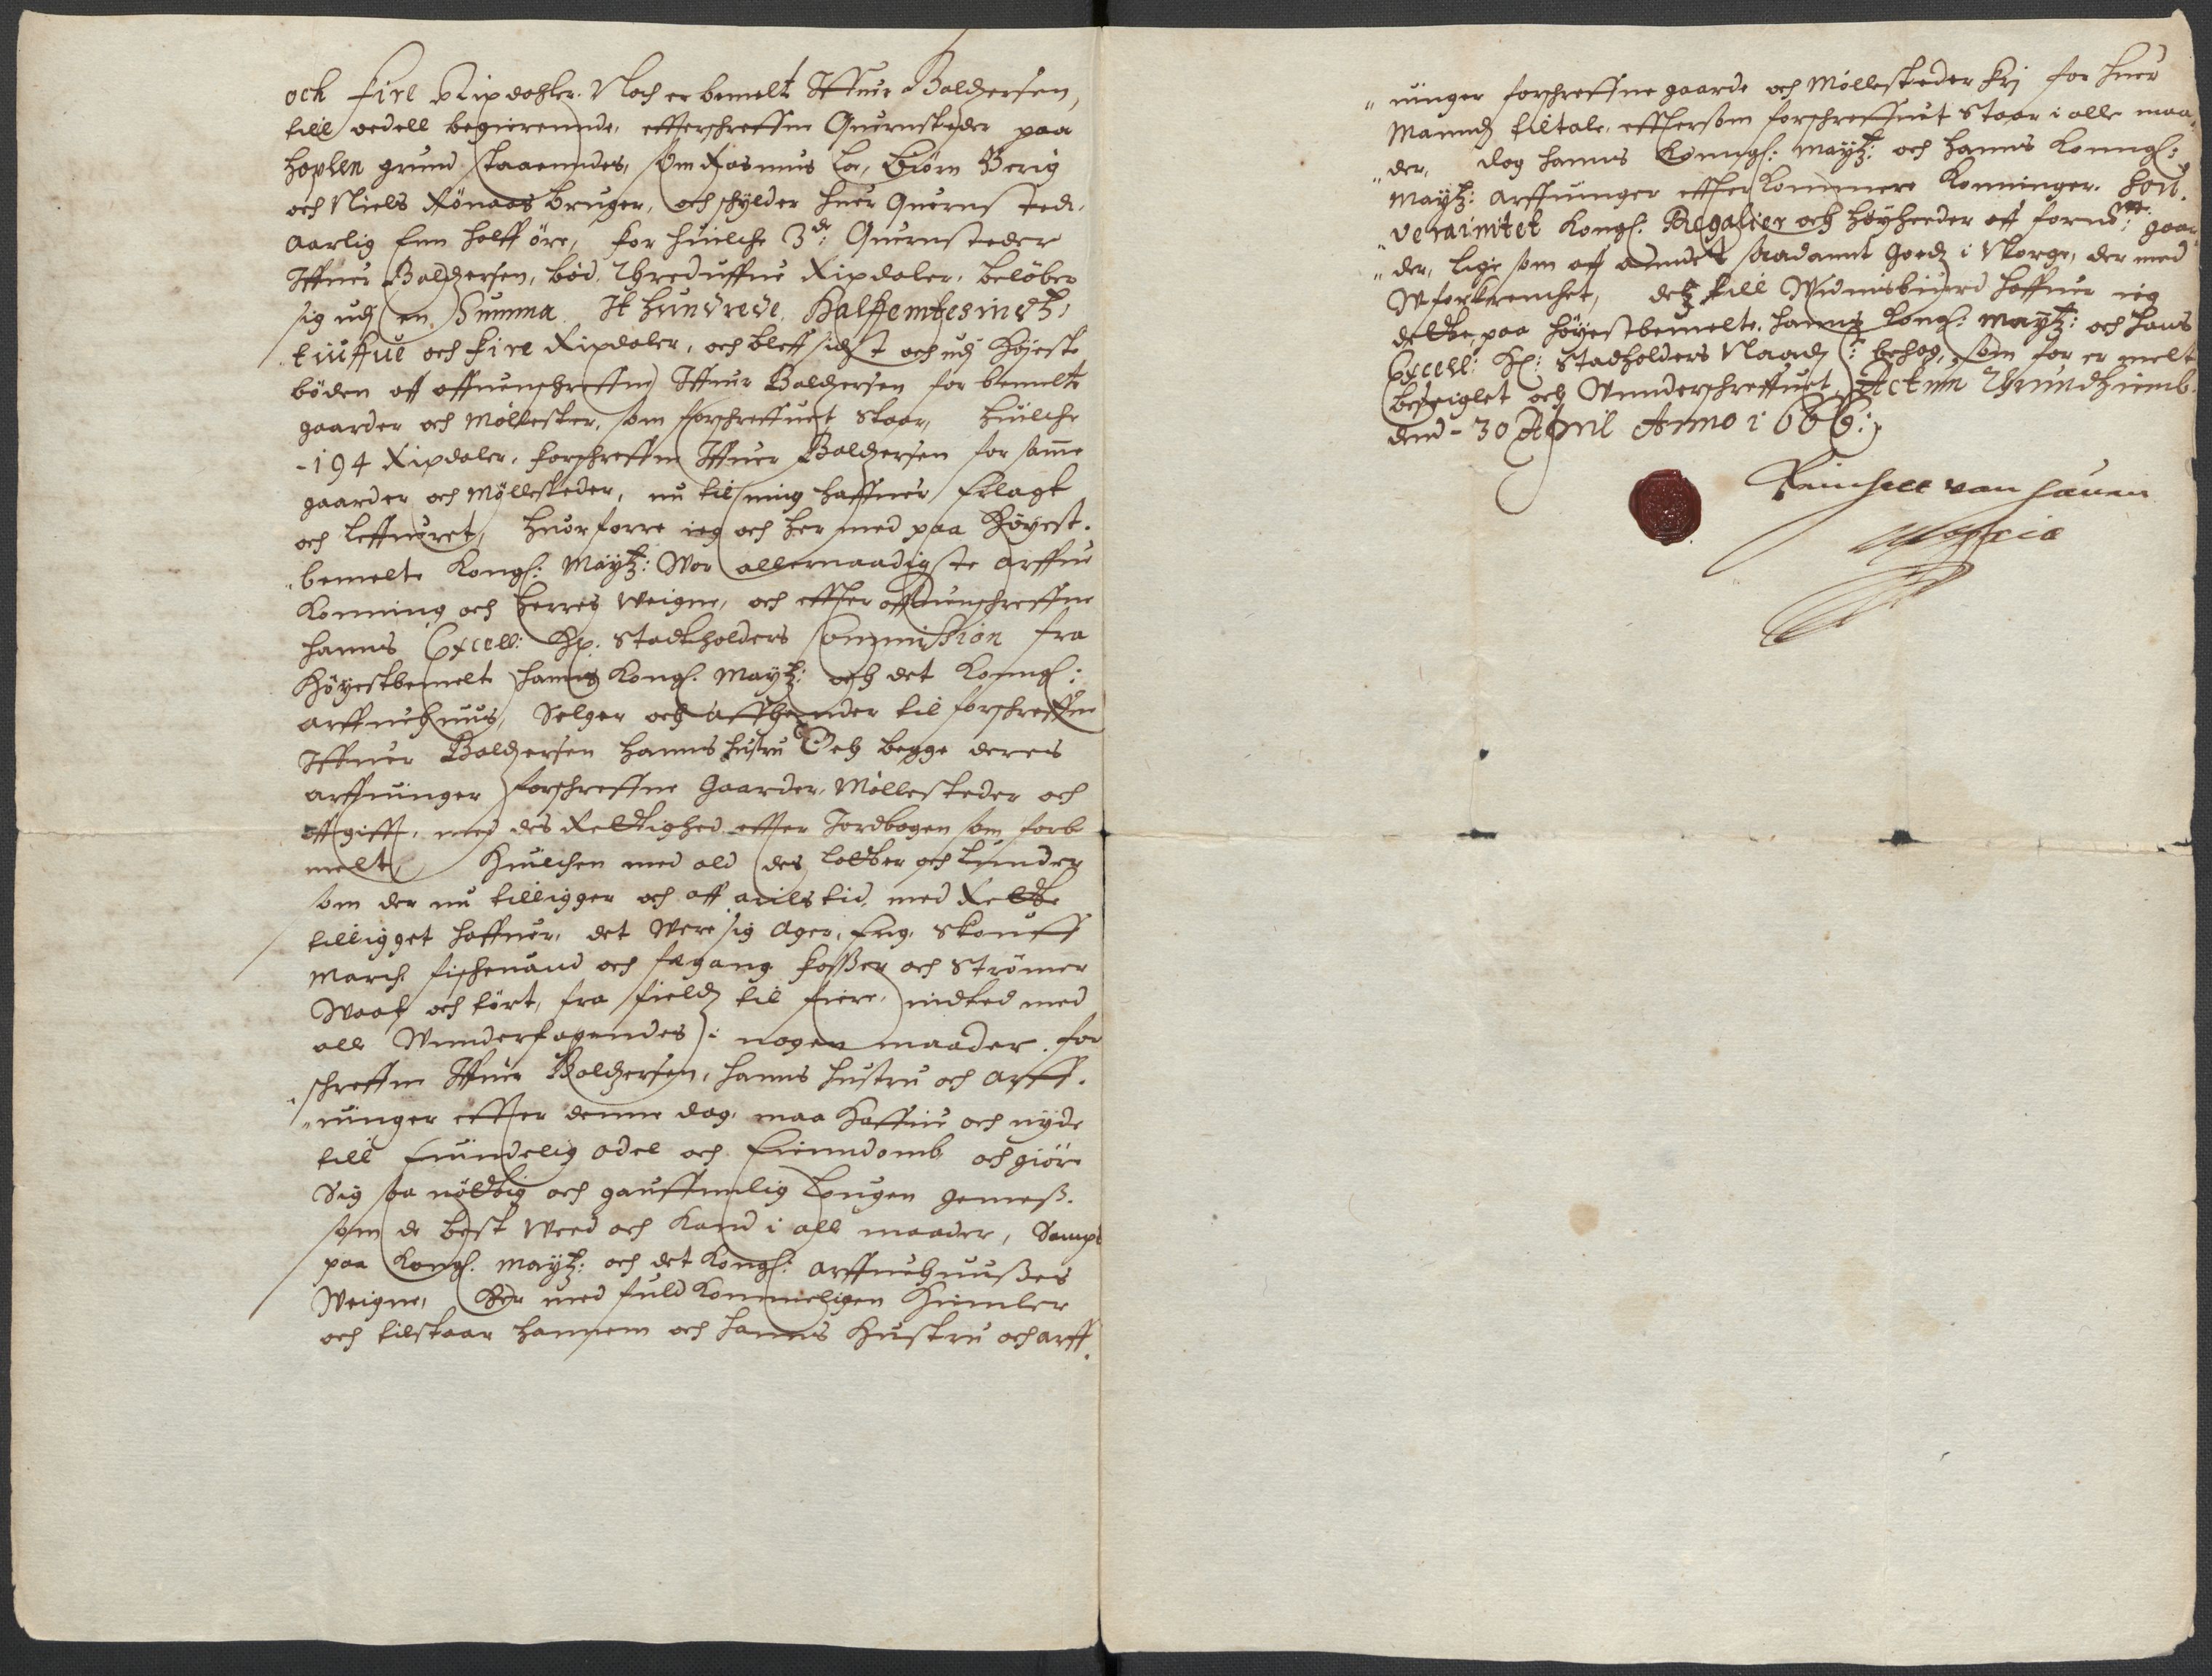 och fire Rixdahler. Noch er bemelt Iffuer Baldzersen,
till vedell begierennde, effterschreffne Quernsteder paa
Hoplen grund staaenndes, som Rasmus Loe, Biørn Berig
och Niels Rönaas bruger, och schylder huer Quernstede,
Aarlig Enn halff öre, for huilche 3de: Quernsteder
Iffuer Baldzersen, bød, Threduffue Rixdaler, beløber
sig udj en Summa It hundrede Halffemtesindtz
tiuffue och fire Rixdaler, och bleff sidst och udj Høieste
böden aff offuenschreffne Iffuer Baldzersen for bemelte
gaarder och Møllester, som forschreffuet staar, huilche
-194 Rixdaler, forschreffne Iffuer Baldzersen for same
gaarder och Mølllesteder, nu til ming haffuer Erlagt
och leffueret, huorforre ieg och her med paa Höyest-
bemelte Kongl: Maytz: Wor allernaadigste Arffue
Konning och Herres Weigne, och effter offuenschreffne
hanns Excell: Hr. Stadtholders Commission fra
Höyestbemelt hanns Kongl. Maytz: och det Konngl:
Arffuehuus, Selger och affhender til forschreffne
Iffuer Baldzersen hanns hustru Och begge deres
Arffuinger forschreffne Gaarder, Møllesteder och
affgifft, med des Rettighed effter Jordbogen som forbe
melt, Huilchen med ald des lotter och Lunder
som der nu tilligger och aff arilstid, med Rette
tilligget haffuer, det Were sig Ager, Eng, Skouff
March, fischeuand och fægang, fosser och Strömer
Waat och tört, fra field til fiere, inndted med
all Wunderfagendes i nogen maader, for
schreffne Iffuer Baldzersen, hanns hustru och Arff-
uinger effter denne dag, maa Haffue och nyde
till Euindelig odel och Eiendomb och giöre
Sig saa nøttig och gauffnlig Lougen gemess.
som de best Weed och Kand i all maader, Sampt
paa Kongl. Maytz: och det Kongl: Arffuehuusses
Weigne, Her med fuld Kommeligen Himler
och tilstaar hannem och hanns Hustru och arff-
uinger forschreffne gaarde och Møllesteder frj for huer
Mannds tiltale, efftersom forschreffuet Staar i alle maa-
der, dog hanns Konngl: Maytz: och hanns Konngl:
Maytz: Arffuinger effter Kommere Konninger. Sou-
verainitet Kongl. Regalier och Höyheeder aff fornde: gaar
der, lige som aff andet saadannt Goedz i Norge, der med
Wforkrenchet, detz till Widnisbiurd haffuer ieg
dette, paa höyestbemelte, hanns Kongl: Maytz: och hans
Excell: Hr: Stadtholders Naadj: behag, som for er melt
beseiglet och Wunderschreffuet, Actum Thrundhiemb
dend - 30 April Anno 1666:
van hauen